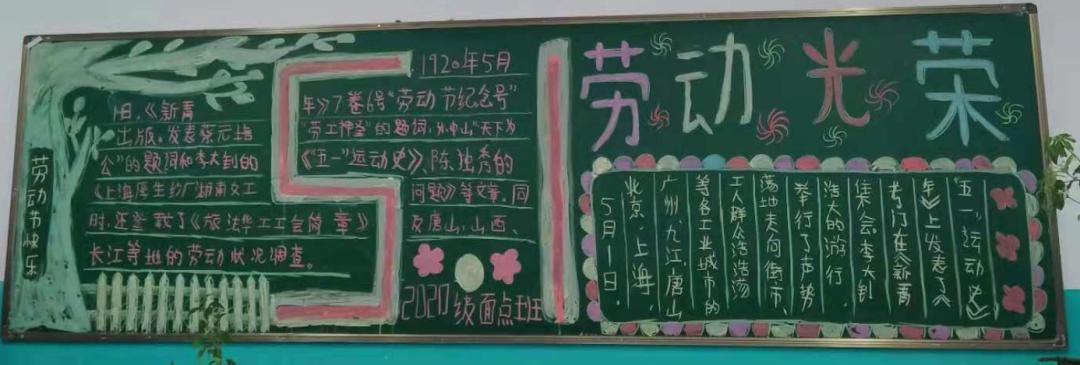 劳动光荣
劳动节快乐
51
1920年5月
1日,《新青
年》7卷6号"劳动节纪念号"
出版。发表蔡元培
"劳工神圣"的题词,孙中山"天下为
公"的题词和李大钊的
《"五一"运动史》、陈独秀的
《上海厚生纱厂湖南女工
问题》等文章。同
时,还登载了《旅法华工工会简章》
及唐山、山西、
长江等地的劳动状况调查。
2020级面点班
5月1日,
北京、上海、
广州、九江、唐山
等各工业城市的
工人群众浩浩荡
荡地走向街市、
举行了声势
浩大的游行、
集会。李大钊
专门在《新青
年》上发表了《
"五一"运动史》